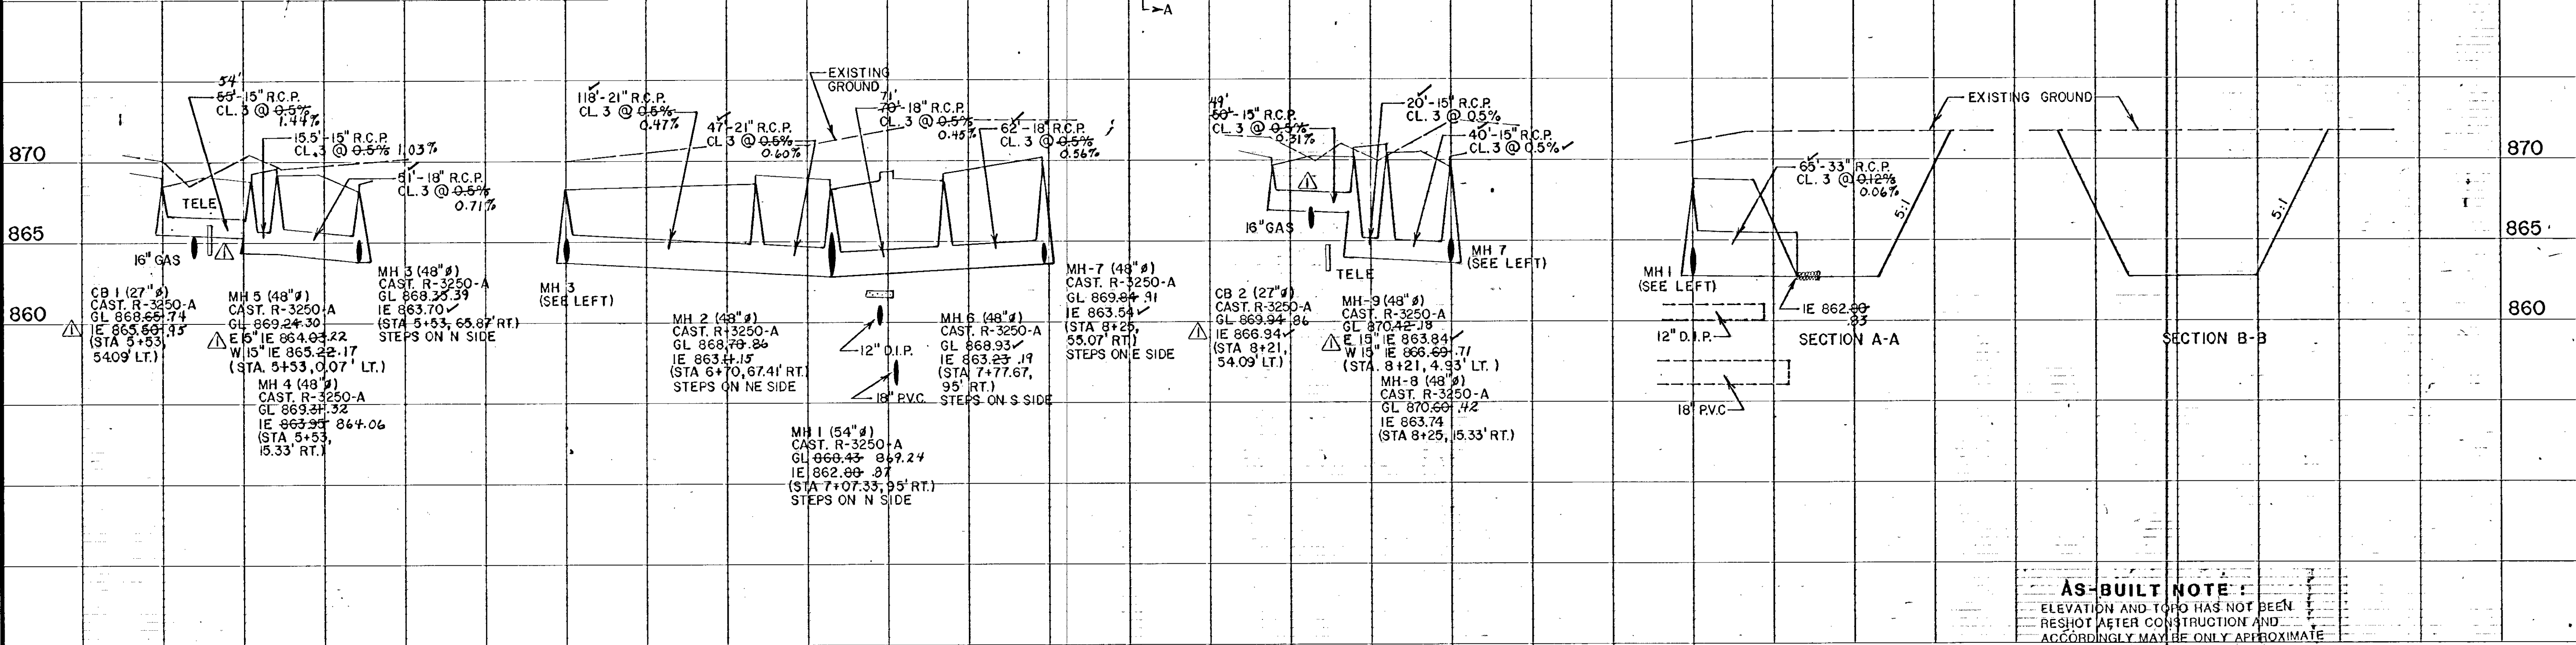 A
54'
55'-15" R.C.P.
CL. 3 @ 0.5%
1.44%
15.5'-15" R.C.P.
CL. 3 @ 0.5% 1.03%
51'-18" R.C.P.
CL. 3 @ 0.5%
0.71%
870
865
860
TELE
16" GAS
CB 1 (27"ø)
CAST. R-3250-A
GL 868.65 .74
IE 865.50 .95
(STA 5+53,
54.09' LT.)
MH 5 (48"ø)
CAST. R-3250-A
GL 869.24 .30
E 15" IE 864.03 .22
W 15" IE 865.22 .17
(STA. 5+53, 0.07' LT.)
MH 4 (48"ø)
CAST. R-3250-A
GL 869.31 .32
IE 863.95 864.06
(STA 5+53,
15.33' RT.)
MH 3 (48"ø)
CAST. R-3250-A
GL 868.35 .39
IE 863.70 ✓
(STA 5+53, 65.87' RT.)
STEPS ON N SIDE
118'-21" R.C.P.
CL. 3 @ 0.5%
0.47%
47'-21" R.C.P.
CL 3 @ 0.5%
0.60%
EXISTING
GROUND
71'
70'-18" R.C.P.
CL. 3 @ 0.5%
0.45%
62'-18" R.C.P.
CL. 3 @ 0.5%
0.56%
MH 3
(SEE LEFT)
MH 2 (48"ø)
CAST. R-3250-A
GL 868.78 .86
IE 863.11 .15
(STA 6+70, 67.41' RT.)
STEPS ON NE SIDE
12" D.I.P.
18" P.V.C.
MH 1 (54"ø)
CAST. R-3250-A
GL 868.43 869.24
IE 862.88 .87
(STA 7+07.33, 95' RT.)
STEPS ON N SIDE
MH 6 (48"ø)
CAST. R-3250-A
GL 868.93 ✓
IE 863.23 .19
(STA 7+77.67,
95' RT.)
STEPS ON S SIDE
MH-7 (48"ø)
CAST. R-3250-A
GL 869.84 .91
IE 863.54 ✓
(STA 8+25,
55.07' RT.)
STEPS ON E SIDE
49'
50'-15" R.C.P.
CL. 3 @ 0.5%
0.31%
20'-15" R.C.P.
CL. 3 @ 0.5%
40'-15" R.C.P.
CL. 3 @ 0.5% ✓
16" GAS
TELE
MH 7
(SEE LEFT)
CB 2 (27"ø)
CAST. R-3250-A
GL 869.94 .86
IE 866.94 ✓
(STA 8+21,
54.09' LT.)
MH-9 (48"ø)
CAST. R-3250-A
GL 870.42 .18
E 15" IE 863.84 ✓
W 15" IE 866.69 .71
(STA. 8+21, 4.93' LT.)
MH-8 (48"ø)
CAST. R-3250-A
GL 870.60 .42
IE 863.74
(STA 8+25, 15.33' RT.)
EXISTING GROUND
65'-33" R.C.P.
CL. 3 @ 0.12%
0.06%
5:1
5:1
MH 1
(SEE LEFT)
IE 862.80
.83
12" D.I.P.
18" P.V.C
SECTION A-A
SECTION B-B
870
865
860
AS-BUILT NOTE :
ELEVATION AND TOPO HAS NOT BEEN
RESHOT AFTER CONSTRUCTION AND
ACCORDINGLY MAY BE ONLY APPROXIMATE